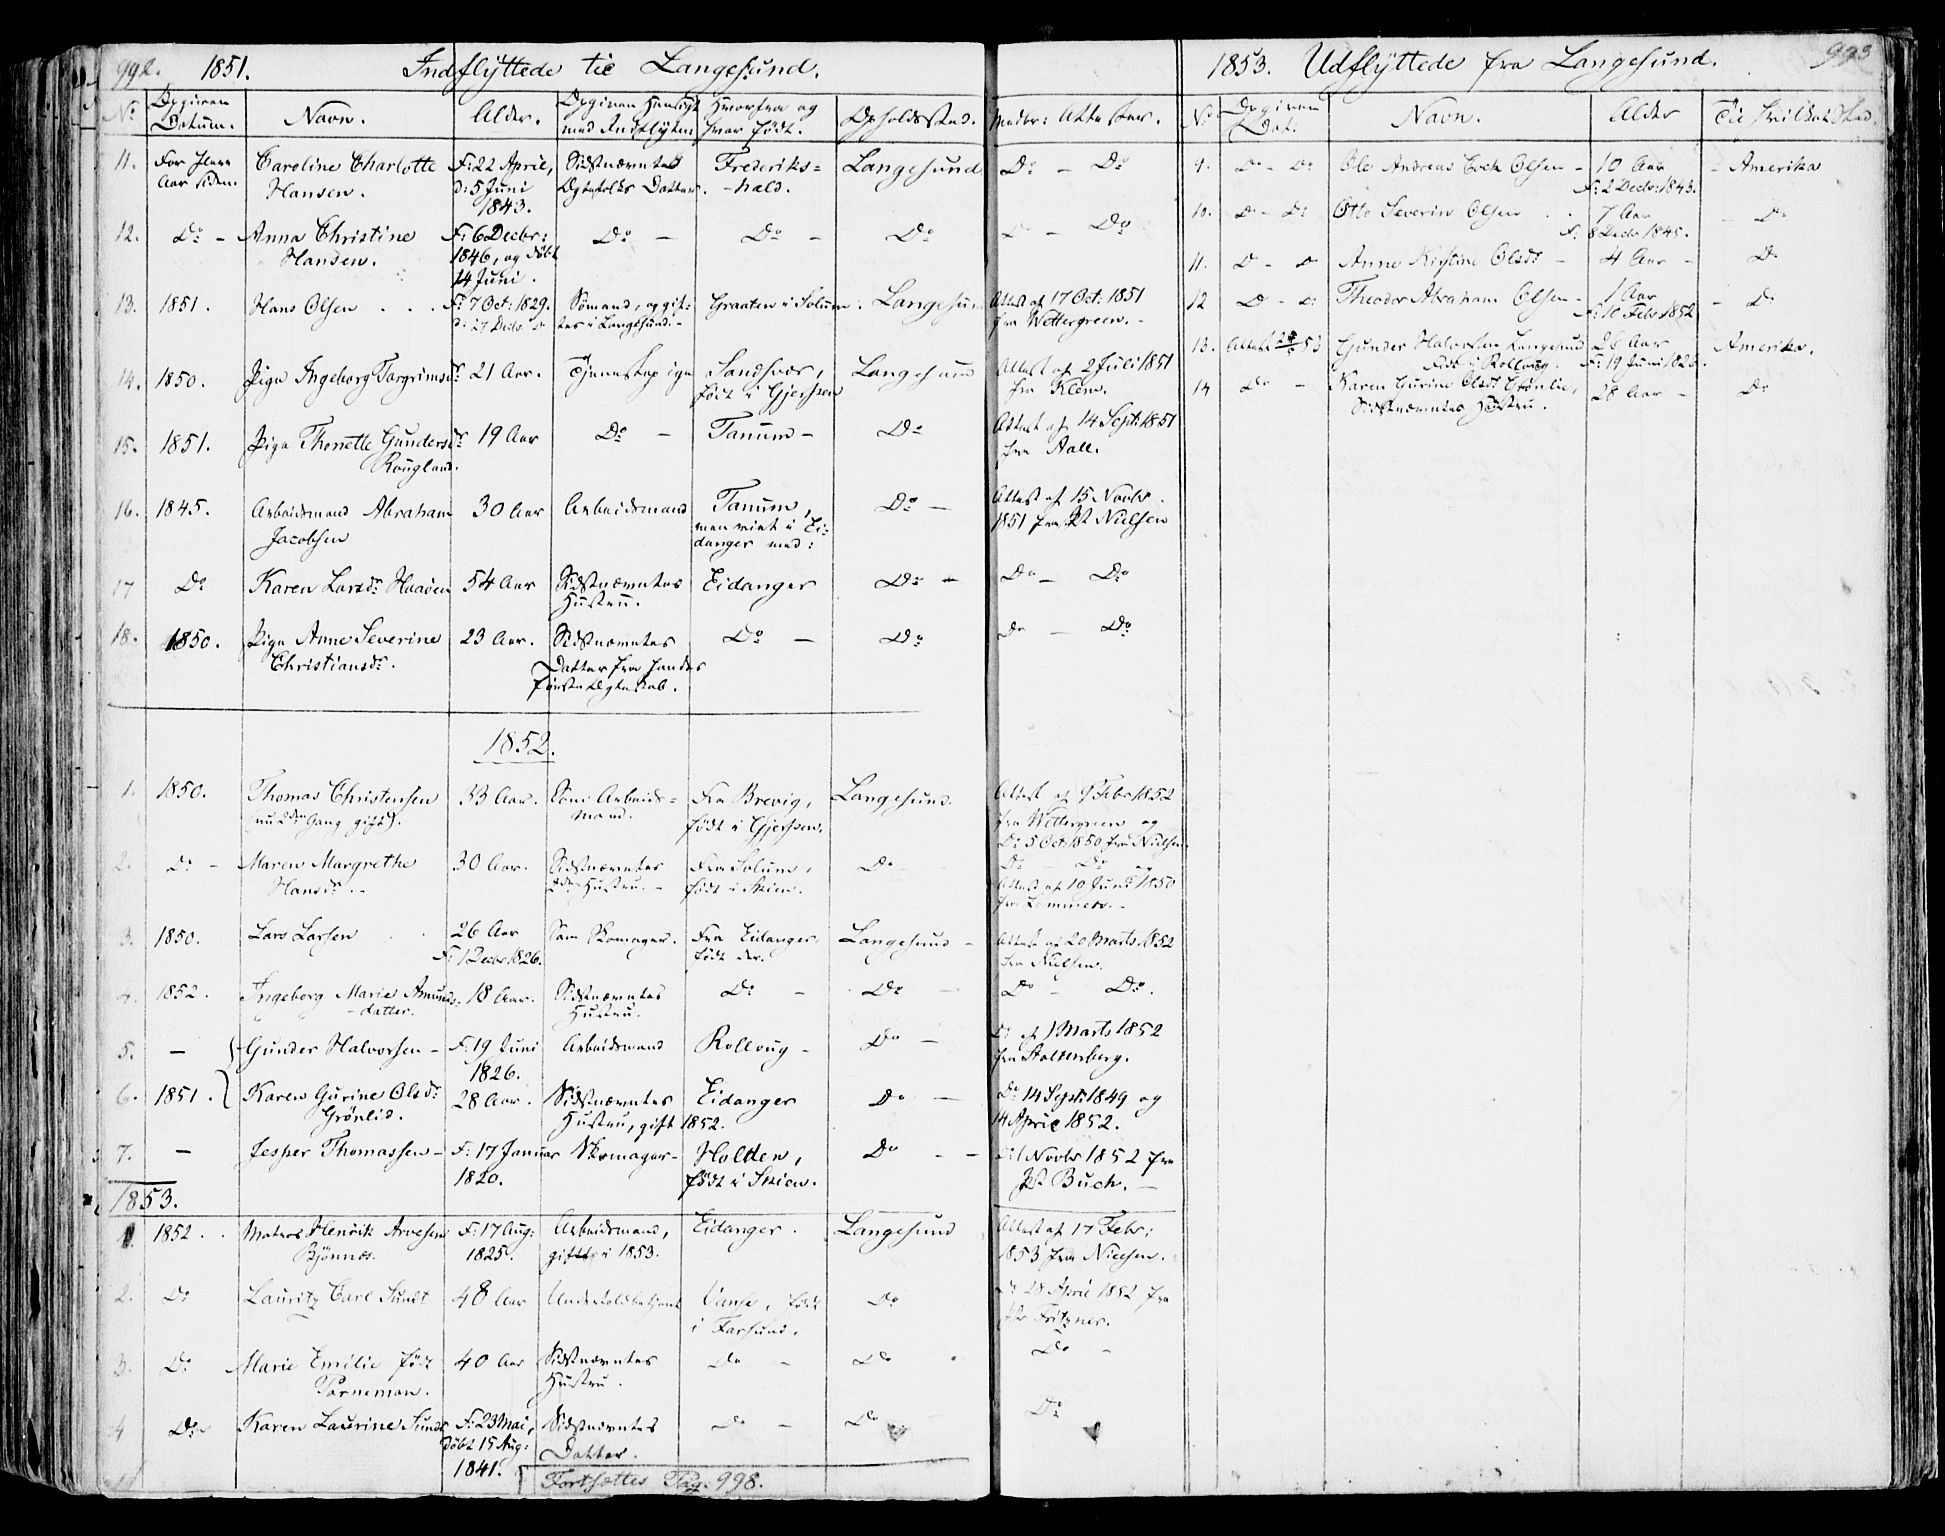 992. 1851. Indflyttede til Langesund.
No Opgiven Datum. Navn. Alder. Opgiven Hensigt med Indflytn: Hvorfra og hvor født. Opholdssted. Medbr: Attester.
11. For flere Caroline Charlotte F: 22 April, Sidstnævntes Frederiks= Langesund Do – Do
Aar siden. Hansen. d: 5 Juni Ægtefolks Datter. -hald.
1843.
12. Do – Anna Christine F: 6 Decbr: Do – Do – Do Do
Hansen. 1846, og døbt
14 Juni.
13. 1851. Hans Olsen . . . F: 7 Oct: 1829. Sömand, og gif: Graaten i Solum. Langesun Attest af 17 Oct: 1851
d: 27 Decbr tes i Langesund. – fra Wettergreen. –
14. 1850. Pige Ingeborg Torgrimsdr 21 Aar. Tjenestepige Sandsvær, Langesund Attest af 2 Juli 1851
født i Gjerpen fra Klem.
15. 1851. Pige Thonette Gundersdr 19 Aar Do – Tanum – Do Attest af 14 Sept: 1851
Rougland. fra Aall.
16. 1845. Arbeidsmand Abraham 30 Aar Arbeidsmand Tanum, Do – Attest af 15 Novbr.
Jacobsen men viet i Ei: 1851 fra Pst Nielsen
danger med:
17 Do Karen Larsdr Haaøen 54 Aar Sidstnævntes Eidanger Do – Do – Do
Hustru.
18. 1850. Pige Anne Severine 23 Aar. Sidstnævntes Do – Do Do – Do
Christiansdr. Datter fra hendes
første Ægteskab.
1852.
1. 1850. Thomas Christensen 33 Aar. Som Arbeids= Fra Brevig, Langesund. Attest af 9 Febr 1852
(nu 2den Gang gift). mand. født i Gjerpen. fra Wettergreen og
Do 5 Oct 1850 fra Nielsen
2. Do – Maren Margrethe 30 Aar. Sidstnævntes Fra Solum, Do Do Do og
Hansdr. – Hustru. – født i Skien. Attest af 10 Juni 1850
fra Lammers. –
3. 1850. Lars Larsen 26 Aar Som Skomager. Fra Eidanger, Langesund – Attest af 20 Marts 1852
F: 1 Decbr 1826. født der. fra Nielsen.
4. 1852. Ingeborg Marie Amunds- 18 Aar. Sidstnævntes Do – Do – Do – Do.
-datter. Hustru.
5. – Gunder Halvorsen – F: 19 Juni Arbeidsmand Rolloug – Do – Do af 1 Marts 1852
1826. fra Stoltenberg.
6. 1851. Karen Gurine Olsdr 28 Aar. Sidstnævntes Eidanger Do – Do 14 Sept: 1849 og
Grönlid. Hustru, gift 1852. 14 April 1852.
7. – Jesper Thomassen – F: 17 Januar Skomager – Holden, Do – – Do 1 Novbr 1852 fra
1820. født i Skien. Pst Buch. –
1853.
1. 1852. . Matros Henrik Arvesen F: 17 Aug: Arbeidsmand, Eidanger. Langesund Attest af 17 Febr:
Bjönnes. 1825. giftes i 1853. 1853 fra Nielsen.
2. Do Lauritz Carl Sundt 48 Aar Undertoldbetjent Vanse, født Do Do 28 April 1852 fra
i Farsund. Pst Fritzner.
3. Do Marie Emilie født 40 Aar Sidstnævntes Do – Do Do –
Torneman. Hustru.
4 Do Karen Laurine Sundt F: 23 Mai, Sidstnævntes Do – Do Do
døbt 15 Aug: Datter.
1841.
Fortsættes Pag. 998.
1853. Udflyttede fra Langesund. 993
No Opgiven Dat: Navn. Alder Til hvilket Sted.
9. Do – Do Ole Andreas Olsen – 10 Aar – Amerika
F: 2 Decbr: 1843.
10. Do – Do Otto Severin Olsen . . 7 Aar – Do
F: 8 Decbr 1845.
11. Do – Do Anne Kirstine Olsdr – 4 Aar – Do
12 Do – Do Theodor Abraham Olsen – 1 Aar – Do
F: 10 Febr 1852
13. Attest 53 Gunder Halvorsen Langesund 26 Aar Amerika.
født i Rolloug. F: 19 Juni 1826.
14 Do – Karen Gurine Olsdr Grönlie, 28 Aar – Do
Sidstnævntes Hustru.